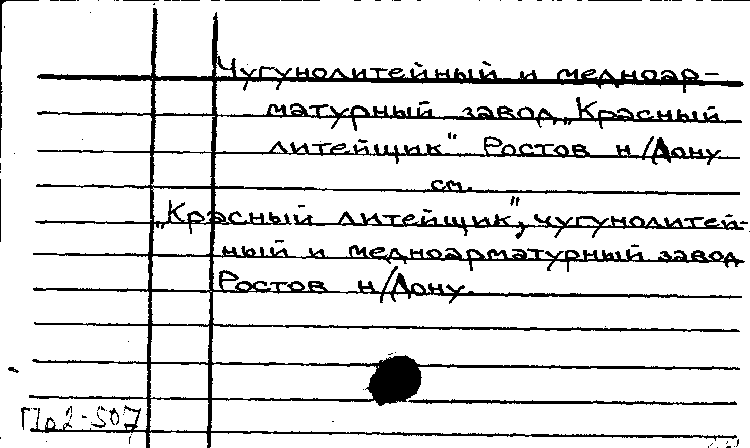 Чугунолитейный и медноар-
матурный завод „Красный
литейщик" Ростов н/Дону
см.
„Красный литейщик", чугунолитей-
ный и медноарматурный завод
Ростов н/Дону.
Пр2-507